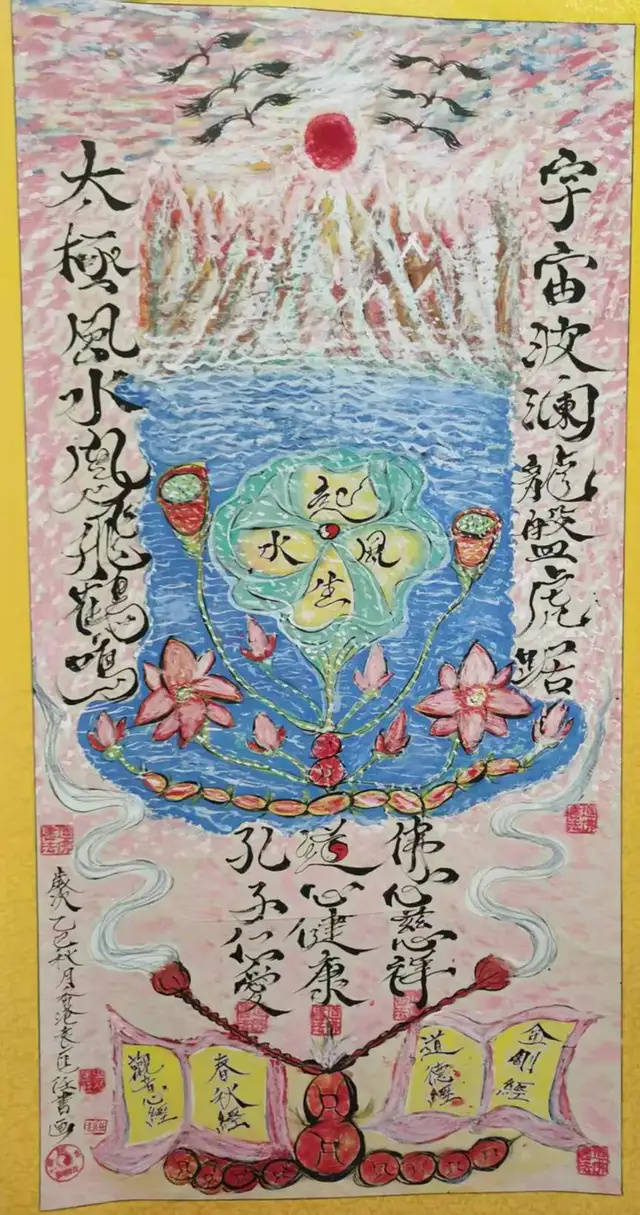 宇宙波澜龍盤虎踞
太極風水鳳飛鶴鳴
起
水 風
生
佛心慈祥
道心健康
孔子仁愛
金剛經
道德經
春秋經
觀音心經
乙巳秋月
書画